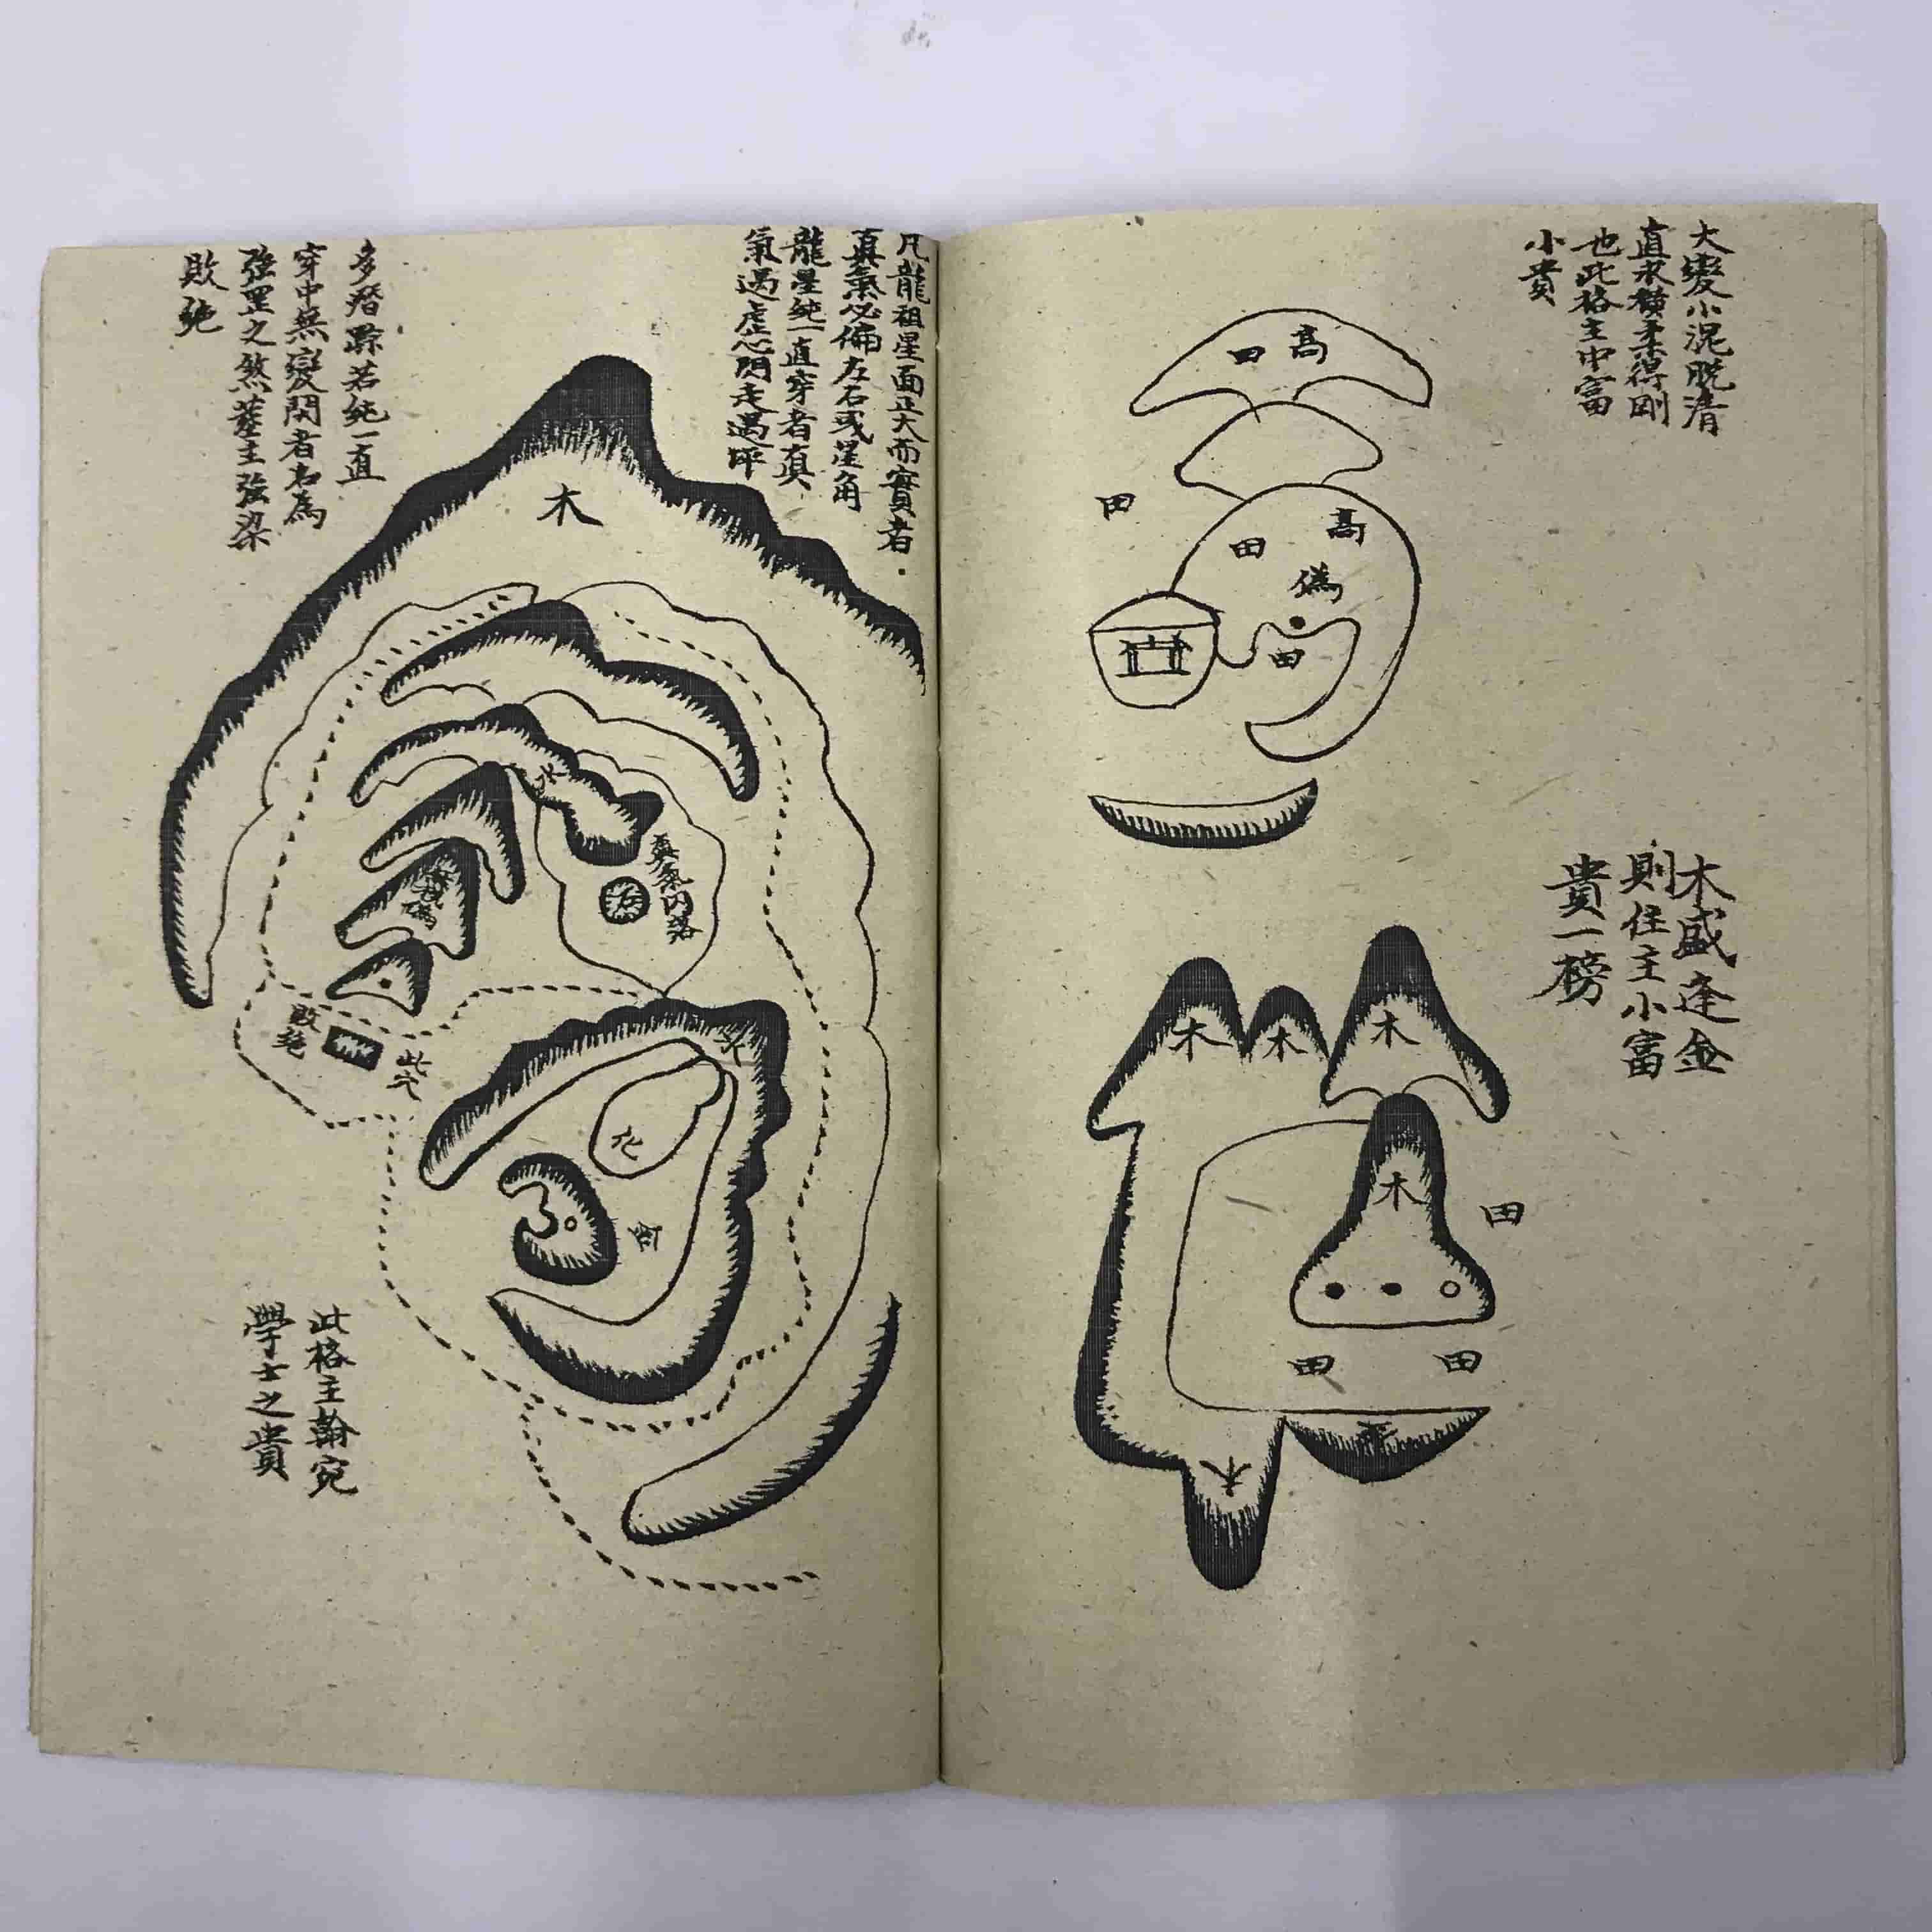 大變小混脫清
直求橫柔得剛
也此格主中富
小貴
高
田
田
高
田
偽
田
木盛逢金
則佳主小富
貴一榜
木
木
木
木
田
田
田
木
凡龍祖星面正大而實者
真氣必偏左右或星角
龍星純一直穿者真
氣過虛心閃走過坪
多潛踪若純一直
穿中無變閃者名為
強罡之煞塟主強梁
敗絶
木
水
真氣內落
敗絶
此穴
化
此格主翰宛
學士之貴